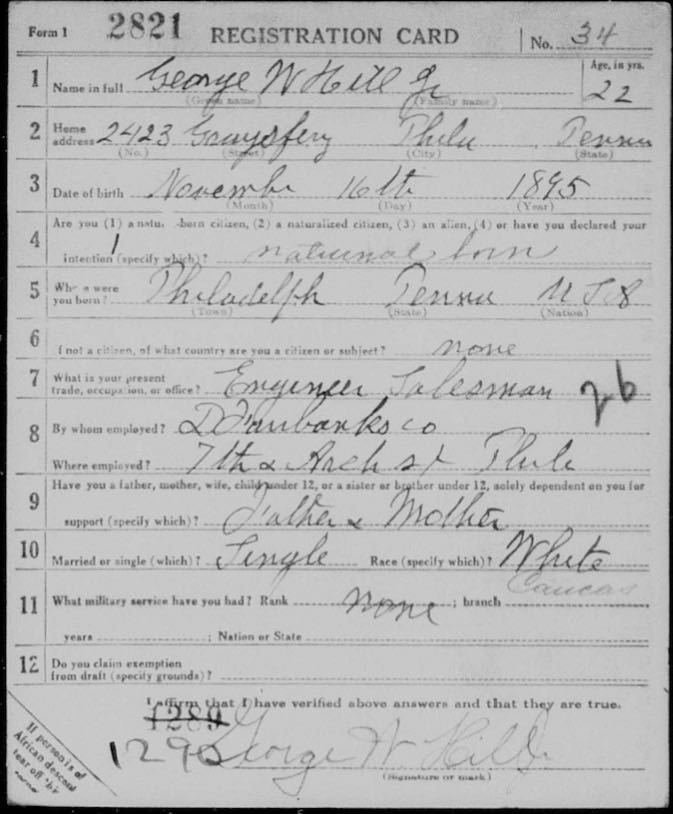 Form 1 2821 REGISTRATION CARD No. 34
1 Name in full George W Hill Jr Age, in yrs. 22
(Given name) (Family name)
2 Home address 2423 Graysfery Phila Penna
(No.) (Street) (City) (State)
3 Date of birth November 16th 1895
(Month) (Day) (Year)
4 Are you (1) a natu -born citizen, (2) a naturalized citizen, (3) an alien, (4) or have you declared your
intention (specify which)? 1 natural born
5 Where were you born? Philadelph Penna U S A
(Town) (State) (Nation)
6 f not a citizen, of what country are you a citizen or subject? none
7 What is your present trade, occupation, or office? Engineer Salesman 26
8 By whom employed? Fairbanks co
Where employed? 7th & Arch st Phila
9 Have you a father, mother, wife, child under 12, or a sister or brother under 12, solely dependent on you for
support (specify which)? Father & Mother
10 Married or single (which)? Single Race (specify which)? White
Caucas
11 What military service have you had? Rank none ; branch
years ; Nation or State
12 Do you claim exemption from draft (specify grounds)?
I affirm that I have verified above answers and that they are true.
1289
1290 George W Hill Jr
(Signature or mark)
If person is of
African descent
tear off